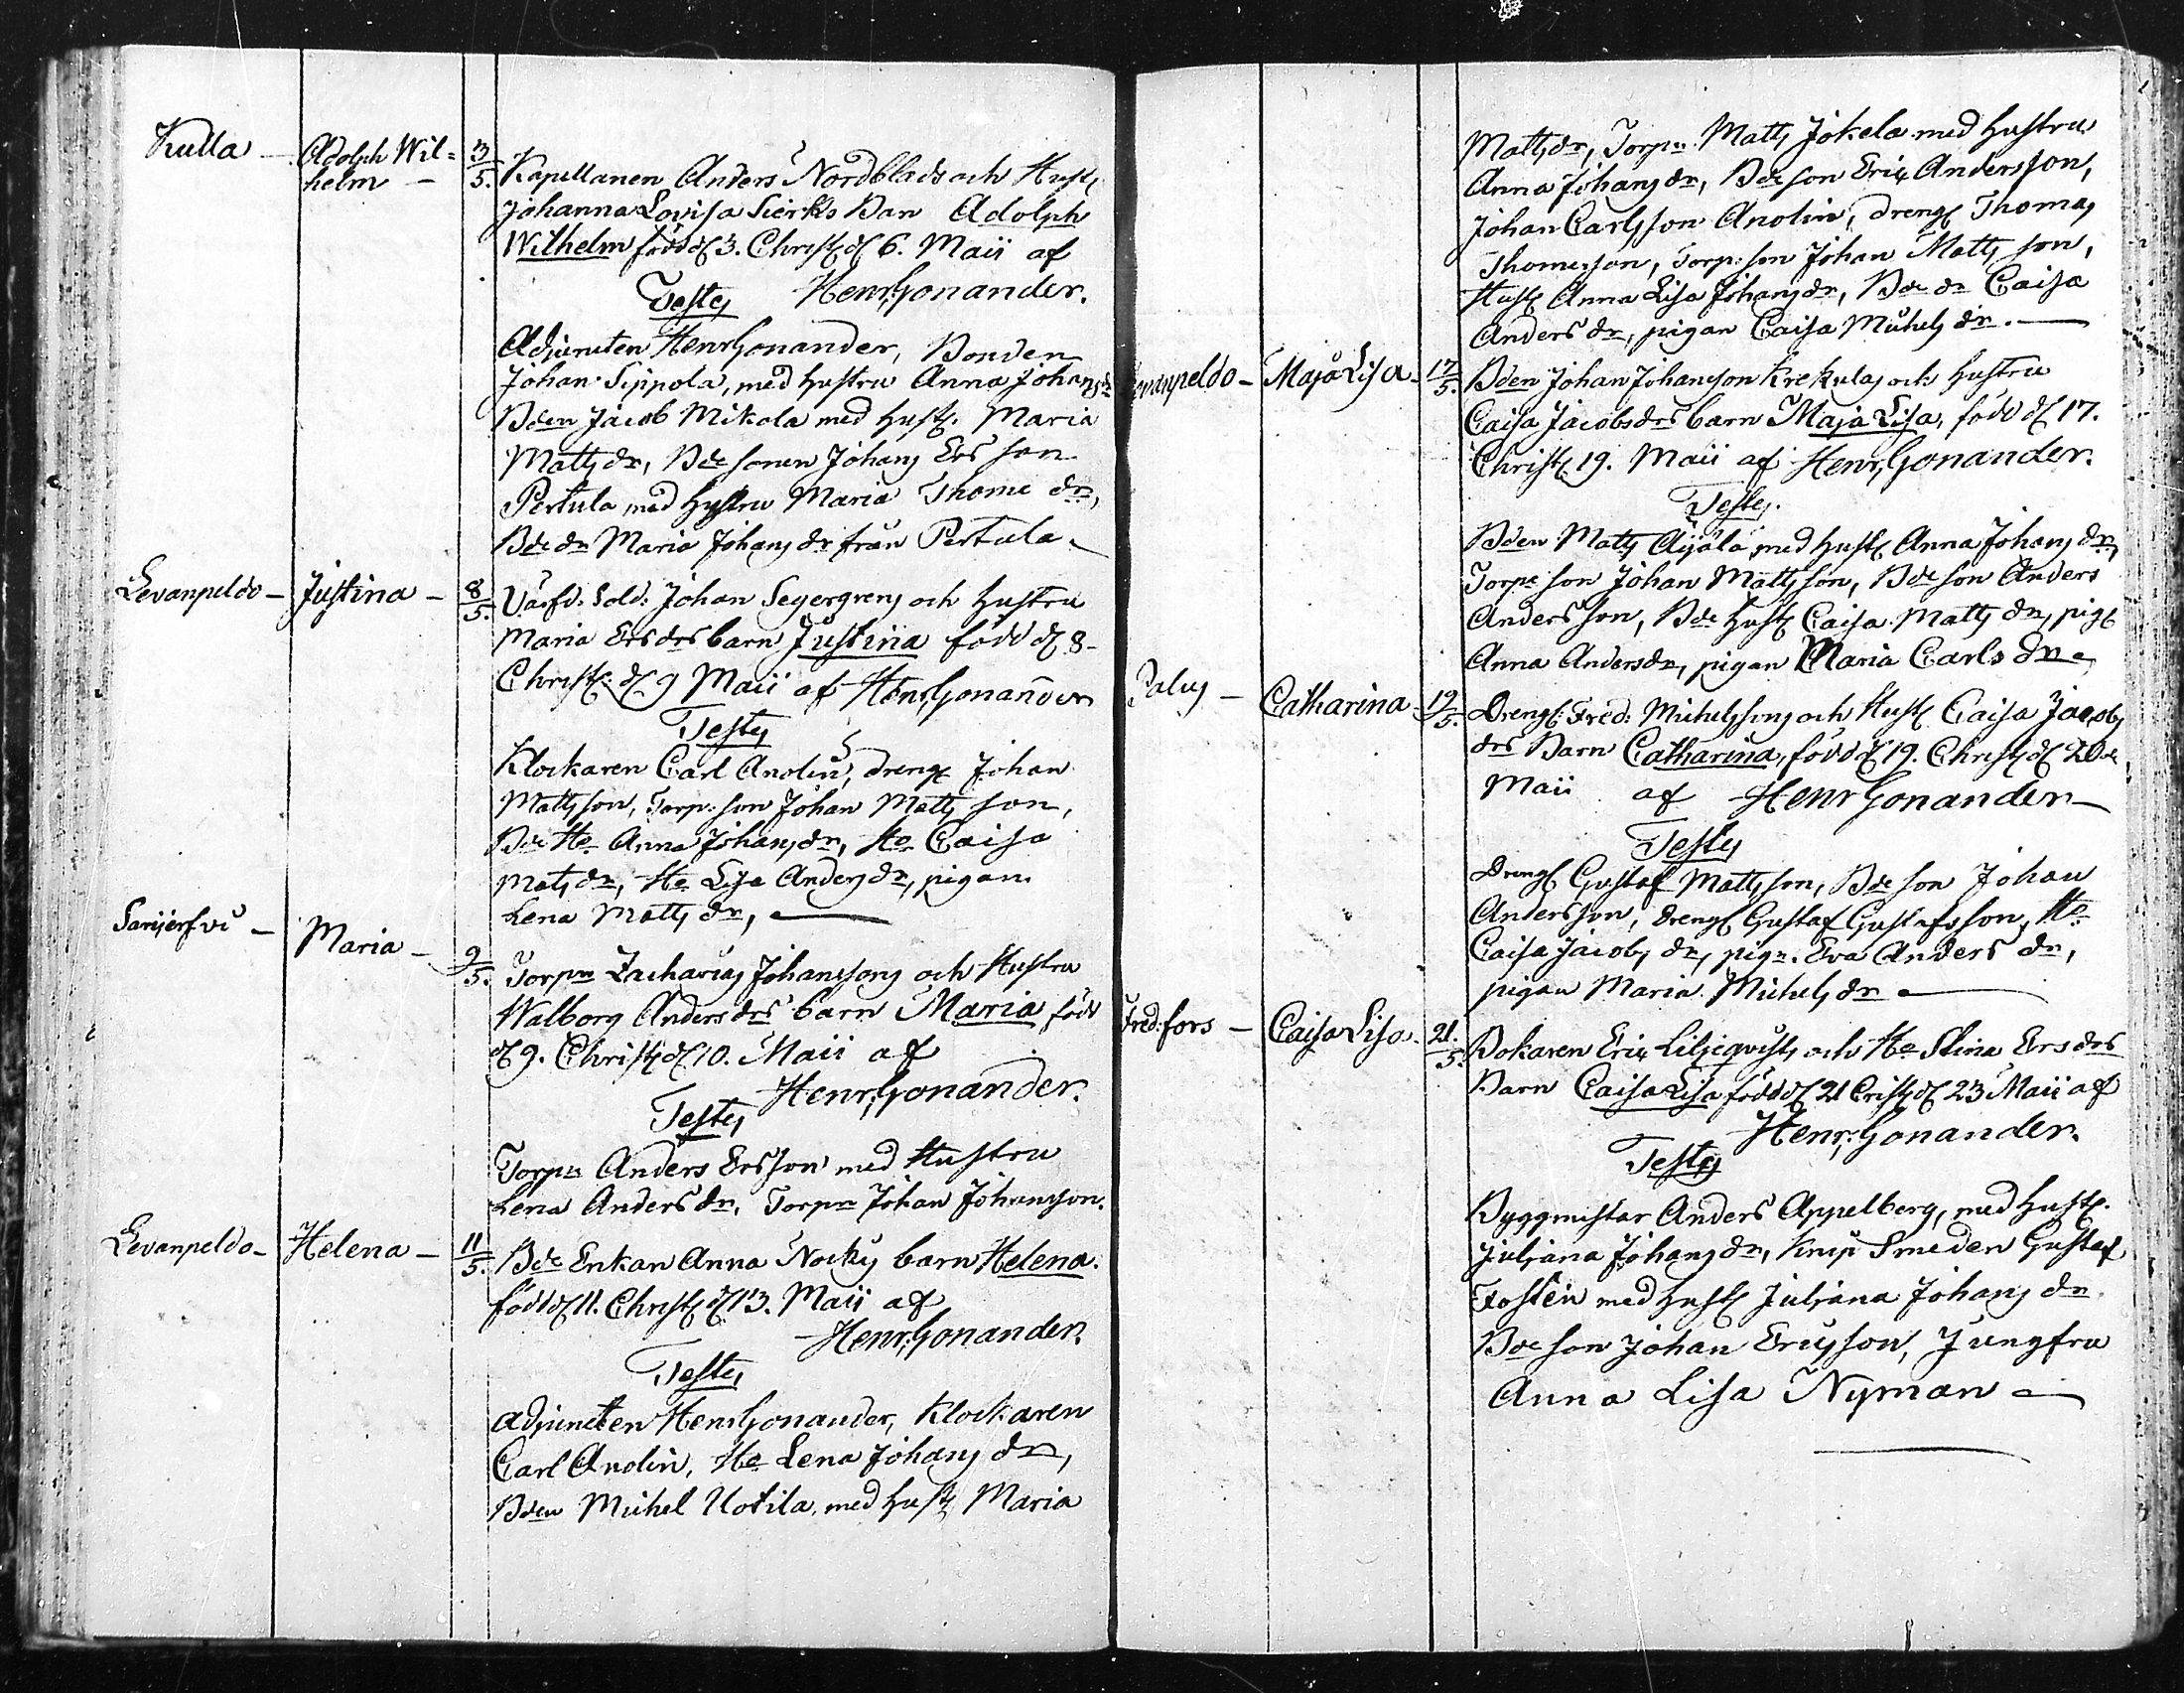 Kulla — Adolph Wil= 3/5. Kapellanen Anders Nordblads och Hust:
helm — Johanna Lovisa Sierks Barn Adolph
Wilhelm född d. 3. Christ. d. 6. Maii af
Testes Henr: Gonander.
Adjuncten Henr Gonander, Bonden
Johan Sippola, med hustru Anna Johansdr
Bden Jacob Mikola med Hust. Maria
Mattsdr, Bde sonen Johans Ers son
Pertula, med hustru Maria Thome dr,
Bde dr Maria Johans dr från Pertula.
Levanpeldo — Justina — 8/5. Varfd. Sold: Johan Segergrens och hustru
Maria Ers drs barn Justina född d. 8.
Christ. d. 9 Maii af Henr, Gonander
Testes
Klockaren Carl Anolin, dreng. Johan
Mattsson, Torp: son Johan Matts son,
Bde Ha Anna Johansdr, Ha Caisa
Matsdr, Ha Lisa Andersdr, pigan
Lena Matts dr, —
Sarijerfvi — Maria — 9/5. Torpn Zacharias Johanssons och Hustru
Walborg Anders drs barn Maria född
d. 9. Christ. d. 10. Maii af
Henr, Gonander.
Testes
Torpn Anders Ersson med Hustru
Lena Anders dr, Torpn Johan Johansson.
Levanpeldo — Helena — 11/5. Bde Enkan Anna Nockis barn Helena.
född d. 11. Christ. d. 13. Maii af
Henr: Gonander.
Testes
Adjuncten Henr Gonander, Klockaren
Carl Anolin, Ha Lena Johans dr,
Bden Michel Uotila, med hust. Maria
Mattsdr, Torpn Matts Jokela med hustru
Anna Johansdr, Bde son Eric Andersson,
Johan Carlsson Anolin, dreng. Thomas
Thomesson, Torp: son Johan Matts son,
Hust. Anna Lisa Johansdr, Bde dr Caisa
Anders dr, pigan Caisa Michels dr. —
Levanpeldo — Maja Lisa — 17/5. Bden Johan Johansson Krekulas och hustru
Caisa Jacobsdrs barn Maja Lisa, född d. 17.
Christ. 19. Maii af Henr, Gonander.
Testes.
Bden Matts Aijälä med hust. Anna Johans dr,
Torp: son Johan Mattsson, Bde son Anders
Andersson, Bde hust. Caisa Matts dr, pig.
Anna Andersdr, pigan Maria Carls dr.
Palus — Catharina — 19/5. Dreng. Fred: Michelssons och Hust. Caisa Jacobs
drs Barn Catharina, född d. 19. Christ. d. 20de
Maii af Henr Gonander
Testes
Dreng. Gustaf Mattsson, Bde son Johan
Andersson, dreng. Gustaf Gustafsson, Ha
Caisa Jacobs dr, pign. Eva Anders dr,
pigan Maria Michels dr —
Fred: fors — Caisa Lisa — 21/5. Bokaren Eric Liljeqvists och Ha Stina Ers drs
Barn Caisa Lisa född d. 21 Crist. d. 23 Maii af
Henr: Gonander.
Testes
Byggmestar Anders Appelberg, med hust.
Juljana Johans dr, Knip Smeden Gustaf
Fosten med hust. Juljana Johans dr
Bde son Johan Ericsson, Jungfru
Anna Lisa Nyman —